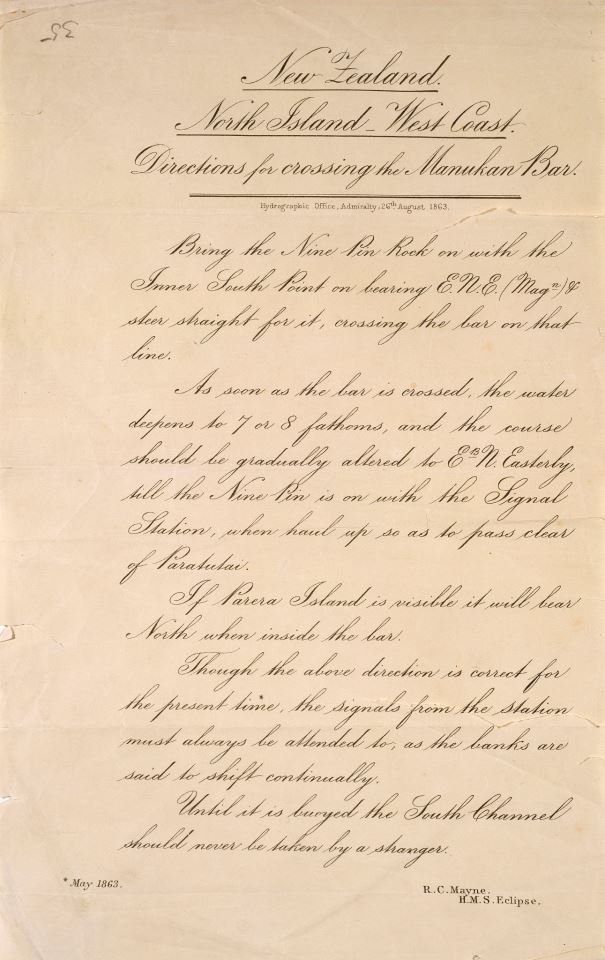 35
New Zealand.
North Island _ West Coast.
Directions for crossing the Manukau Bar.
Hydrographic Office, Admiralty, 26th August 1863.
Bring the Nine Pin Rock on with the
Inner South Point on bearing E.N.E. (Magn) &
steer straight for it, crossing the bar on that
line.
As soon as the bar is crossed, the water
deepens to 7 or 8 fathoms, and the course
should be gradually altered to EBN. Easterly,
till the Nine Pin is on with the Signal
Station, when haul up so as to pass clear
of Paratutai.
If Parera Island is visible it will bear
North when inside the bar.
Though the above direction is correct for
the present time*, the signals from the station
must always be attended to, as the banks are
said to shift continually.
Until it is buoyed the South Channel
should never be taken by a stranger.
* May 1863.
R.C. Mayne.
H.M.S. Eclipse.